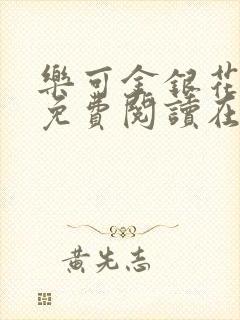 樂可金銀花
免費閱讀在
黃先志